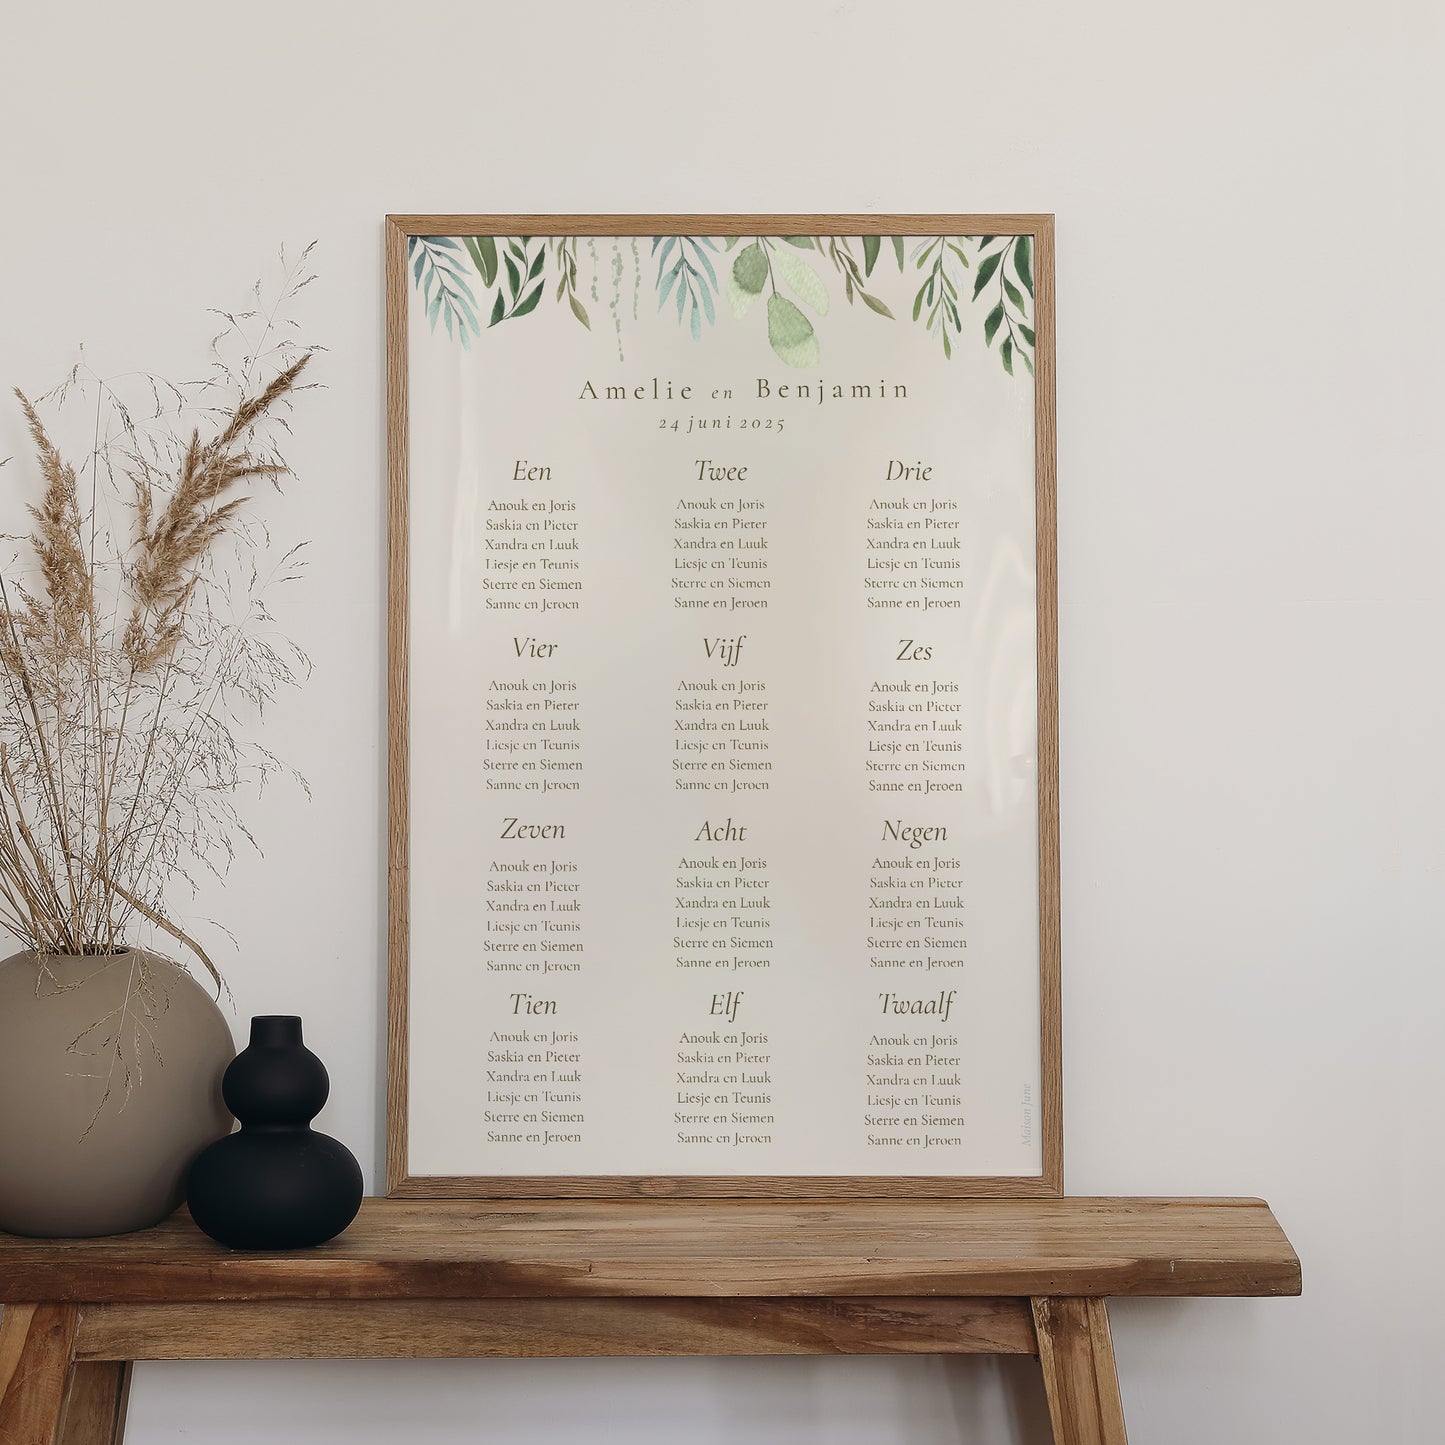 Amelie en Benjamin
24 juni 2025
Een
Anouk en Joris
Saskia en Pieter
Xandra en Luuk
Liesje en Teunis
Sterre en Siemen
Sanne en Jeroen
Twee
Anouk en Joris
Saskia en Pieter
Xandra en Luuk
Liesje en Teunis
Sterre en Siemen
Sanne en Jeroen
Drie
Anouk en Joris
Saskia en Pieter
Xandra en Luuk
Liesje en Teunis
Sterre en Siemen
Sanne en Jeroen
Vier
Anouk en Joris
Saskia en Pieter
Xandra en Luuk
Liesje en Teunis
Sterre en Siemen
Sanne en Jeroen
Vijf
Anouk en Joris
Saskia en Pieter
Xandra en Luuk
Liesje en Teunis
Sterre en Siemen
Sanne en Jeroen
Zes
Anouk en Joris
Saskia en Pieter
Xandra en Luuk
Liesje en Teunis
Sterre en Siemen
Sanne en Jeroen
Zeven
Anouk en Joris
Saskia en Pieter
Xandra en Luuk
Liesje en Teunis
Sterre en Siemen
Sanne en Jeroen
Acht
Anouk en Joris
Saskia en Pieter
Xandra en Luuk
Liesje en Teunis
Sterre en Siemen
Sanne en Jeroen
Negen
Anouk en Joris
Saskia en Pieter
Xandra en Luuk
Liesje en Teunis
Sterre en Siemen
Sanne en Jeroen
Tien
Anouk en Joris
Saskia en Pieter
Xandra en Luuk
Liesje en Teunis
Sterre en Siemen
Sanne en Jeroen
Elf
Anouk en Joris
Saskia en Pieter
Xandra en Luuk
Liesje en Teunis
Sterre en Siemen
Sanne en Jeroen
Twaalf
Anouk en Joris
Saskia en Pieter
Xandra en Luuk
Liesje en Teunis
Sterre en Siemen
Sanne en Jeroen
Maison June